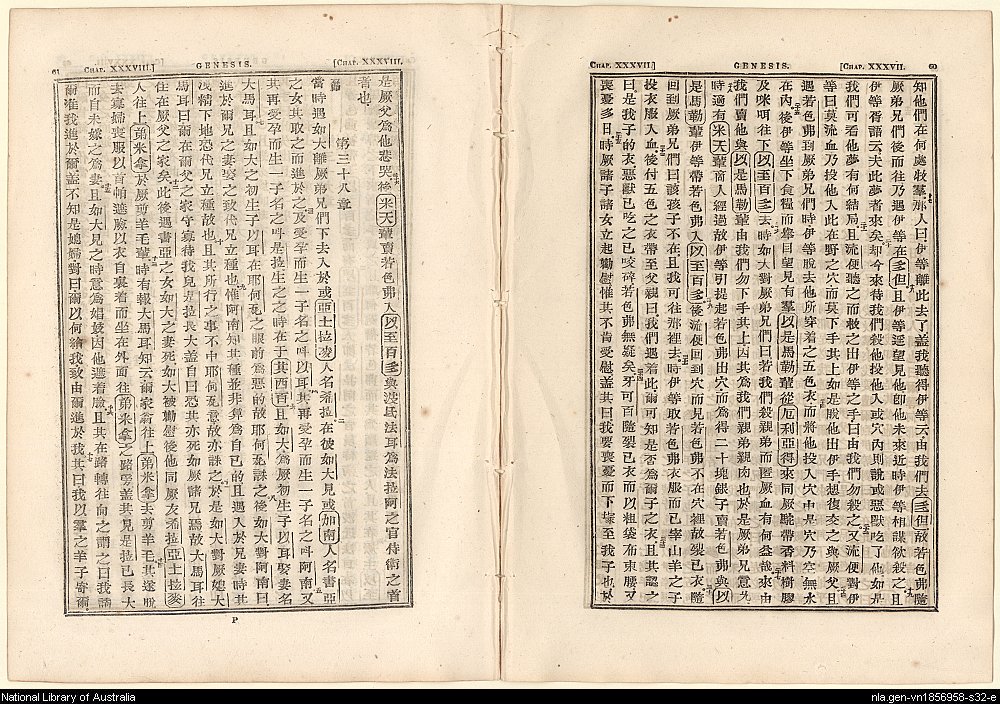 CHAP. XXXVII.] GENESIS. [CHAP. XXXVII. 60
知他們在何處牧羣那人曰伊等離此去了蓋我聽得伊等云由我們去多但故若色弗隨
厥弟兄們後而往乃遇伊等在多但且伊等遥望見他卽他未來近時伊等相謀欲殺之且
伊等胥語云夫此夢者來矣却今來待我們殺他投他入或穴內則說或惡獸吃了他如是
我們可看他夢有何結局且流便聽之而救之出伊等之手曰由我們勿殺之又流便對伊
等曰莫流血乃投他入此在野之穴而莫下手其上如是脫他出伊手想復交之與厥父且
遇若色弗到厥弟兄們時伊等脫去他所穿着之五色衣而將他投入穴中由是穴乃空無水
在內後伊等坐下食糧而舉目望見有羣以是馬勒輩從厄利亞得來同厥駞帶香料樹膠
及咪唎往下以至百多去時如大對厥弟兄們曰若我們殺親弟而匿厥血有何益哉來由
我們賣他與以是馬勒輩由我們勿下手其上因其為我們親弟親肉也於是厥弟兄意允
時適有米天輩商人經過故伊等引提起若色弗出穴而為得二十塊銀子賣若色弗與以
是馬勒輩伊等帶若色弗入以至百多後流便回到穴而見若色弗不在穴裡故裂已衣隨
回到厥弟兄們曰該孩子不在且我可往那裡去時伊等取若色弗衣服而已宰山羊之子
投衣服入血後付五色之衣帶至父親曰我們遇着此爾可知是否為爾子之衣且其認之
曰是我子的衣惡獸已吃之已咬碎若色弗無疑矣牙可百隨裂已衣而以粗袋布束腰又
喪憂多日時厥諸子諸女立起勸慰惟其不肯受慰蓋其曰我要喪憂而下墳至我子也於
61 CHAP. XXXVIII.] GENESIS. [CHAP. XXXVIII.
是厥父為他悲哭後米天輩賣若色弗入以至百多與波氐法耳為法拉阿之官侍衛之首
者也
第三十八章
當時遇如大離厥弟兄們下去入於或亞土拉麥人名希拉在彼如大見或加南人名書亞
之女其取之而進於之及受孕而生一子名之呌以耳其再受孕而生一子名之呌阿南又
其再受孕而生一子名之呌是拉生之之時在于其西百且如大為厥初生子以耳娶妻名
大馬耳且如大之初生子以耳在耶何瓦之眼前為惡的故耶何瓦誅之後如大對阿南曰
進於爾兄之妻娶之致代兄立種也惟阿南知其種並非算為自已的且遇入於兄妻時其
洩精下地恐代兄立種故也且其所行之事不中耶何瓦意故亦誅之於是如大對厥媳大
馬耳曰爾在爾父之家守寡待我兒是拉長大蓋自曰恐其亦死如厥諸兄焉故大馬耳往
住在厥父之家矣此後遇書亞之女如大之妻死如大被勸慰後他同厥友希拉亞土拉麥
人往上弟米拿於厥剪羊毛輩時有報大馬耳知云爾家翁往上弟米拿去剪羊毛其遂脫
去寡婦喪服以首帕遮臉以衣自裹着而坐在外面往弟米拿之路旁蓋其見是拉已長大
而自未嫁之為妻且如大見之時意為娼妓因他遮着臉且其在路轉往向之謂之曰我請
爾准我進於爾蓋不知是媳婦對曰爾以何給我致由爾進於我其曰我以羣之羊子寄爾
P
National Library of Australia
nla.gen-vn1856958-s32-e